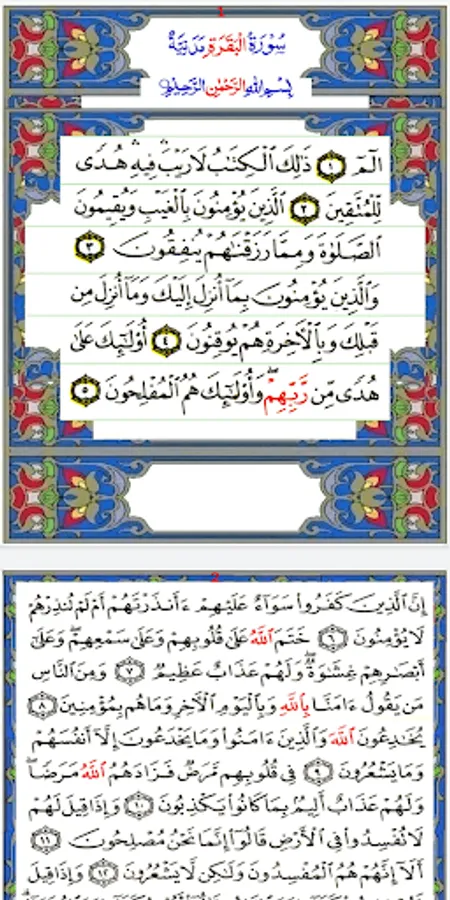 1
سُورَةُ الْبَقَرَةِ مَدَنِيَّةٌ
بِسْمِ اللهِ الرَّحْمٰنِ الرَّحِيمِ
الٓمٓ ﴿١﴾ ذَٰلِكَ الْكِتَٰبُ لَا رَيْبَ ۛ فِيهِ ۛ هُدًى
لِّلْمُتَّقِينَ ﴿٢﴾ الَّذِينَ يُؤْمِنُونَ بِالْغَيْبِ وَيُقِيمُونَ
الصَّلَوٰةَ وَمِمَّا رَزَقْنَٰهُمْ يُنفِقُونَ ﴿٣﴾
وَالَّذِينَ يُؤْمِنُونَ بِمَآ أُنزِلَ إِلَيْكَ وَمَآ أُنزِلَ مِن
قَبْلِكَ وَبِالْأَخِرَةِ هُمْ يُوقِنُونَ ﴿٤﴾ أُوْلَٰٓئِكَ عَلَىٰ
هُدًى مِّن رَّبِّهِمْ ۖ وَأُوْلَٰٓئِكَ هُمُ الْمُفْلِحُونَ ﴿٥﴾
2
إِنَّ الَّذِينَ كَفَرُواْ سَوَآءٌ عَلَيْهِمْ ءَأَنذَرْتَهُمْ أَمْ لَمْ تُنذِرْهُمْ
لَا يُؤْمِنُونَ ﴿٦﴾ خَتَمَ اللَّهُ عَلَىٰ قُلُوبِهِمْ وَعَلَىٰ سَمْعِهِمْ ۖ وَعَلَىٰٓ
أَبْصَٰرِهِمْ غِشَٰوَةٌ ۖ وَلَهُمْ عَذَابٌ عَظِيمٌ ﴿٧﴾ وَمِنَ النَّاسِ
مَن يَقُولُ ءَامَنَّا بِاللَّهِ وَبِالْيَوْمِ الْأَخِرِ وَمَا هُم بِمُؤْمِنِينَ ﴿٨﴾
يُخَٰدِعُونَ اللَّهَ وَالَّذِينَ ءَامَنُواْ وَمَا يَخْدَعُونَ إِلَّآ أَنفُسَهُمْ
وَمَا يَشْعُرُونَ ﴿٩﴾ فِي قُلُوبِهِم مَّرَضٌ فَزَادَهُمُ اللَّهُ مَرَضًا ۖ
وَلَهُمْ عَذَابٌ أَلِيمٌ بِمَا كَانُواْ يَكْذِبُونَ ﴿١٠﴾ وَإِذَا قِيلَ لَهُمْ
لَا تُفْسِدُواْ فِي الْأَرْضِ قَالُوٓاْ إِنَّمَا نَحْنُ مُصْلِحُونَ ﴿١١﴾
أَلَآ إِنَّهُمْ هُمُ الْمُفْسِدُونَ وَلَٰكِن لَّا يَشْعُرُونَ ﴿١٢﴾ وَإِذَا قِيلَ